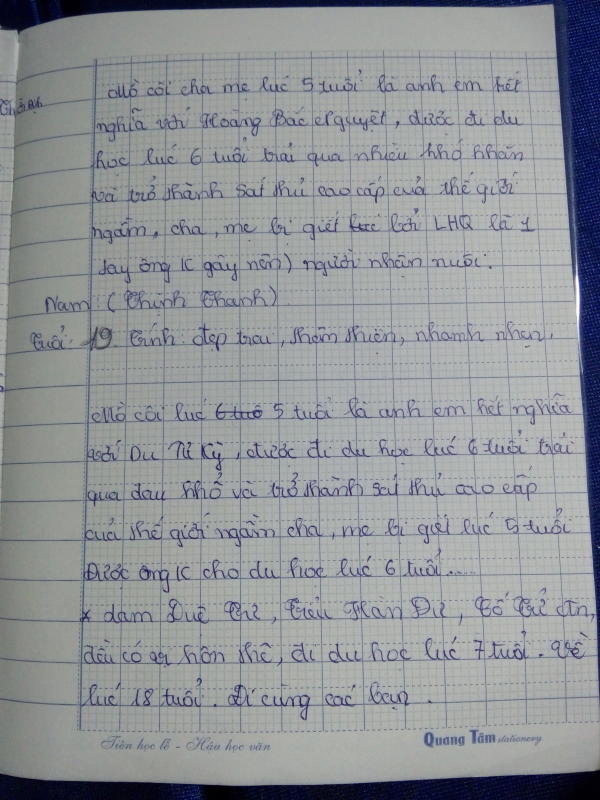 Mồ côi cha mẹ lúc 5 tuổi là anh em kết
nghĩa với Hoàng Bắc Nguyệt, được đi du
học lúc 6 tuổi trải qua nhiều khó khăn
và trở thành sát thủ cao cấp của thế giới
ngầm, cha, mẹ bị giết bởi LHQ là 1
tay ông K gây nên) người nhận nuôi.
Nam: (Thịnh Thanh)
Tuổi: 19. Tính: đẹp trai, thân thiện, nhanh nhẹn.
Mồ côi lúc 5 tuổi là anh em kết nghĩa
với Du Tử Kỳ, được đi du học lúc 6 tuổi trải
qua đau khổ và trở thành sát thủ cao cấp
của thế giới ngầm cha, mẹ bị giết lúc 5 tuổi
Được ông K cho du học lúc 6 tuổi.....
* dam Duệ Trữ, Hàn Dư,
đều có hôn thê, đi du học lúc 7 tuổi. Về
lúc 18 tuổi. Đi cùng các bạn.
Tiên học lễ - Hậu học văn
Quang Tâm stationery